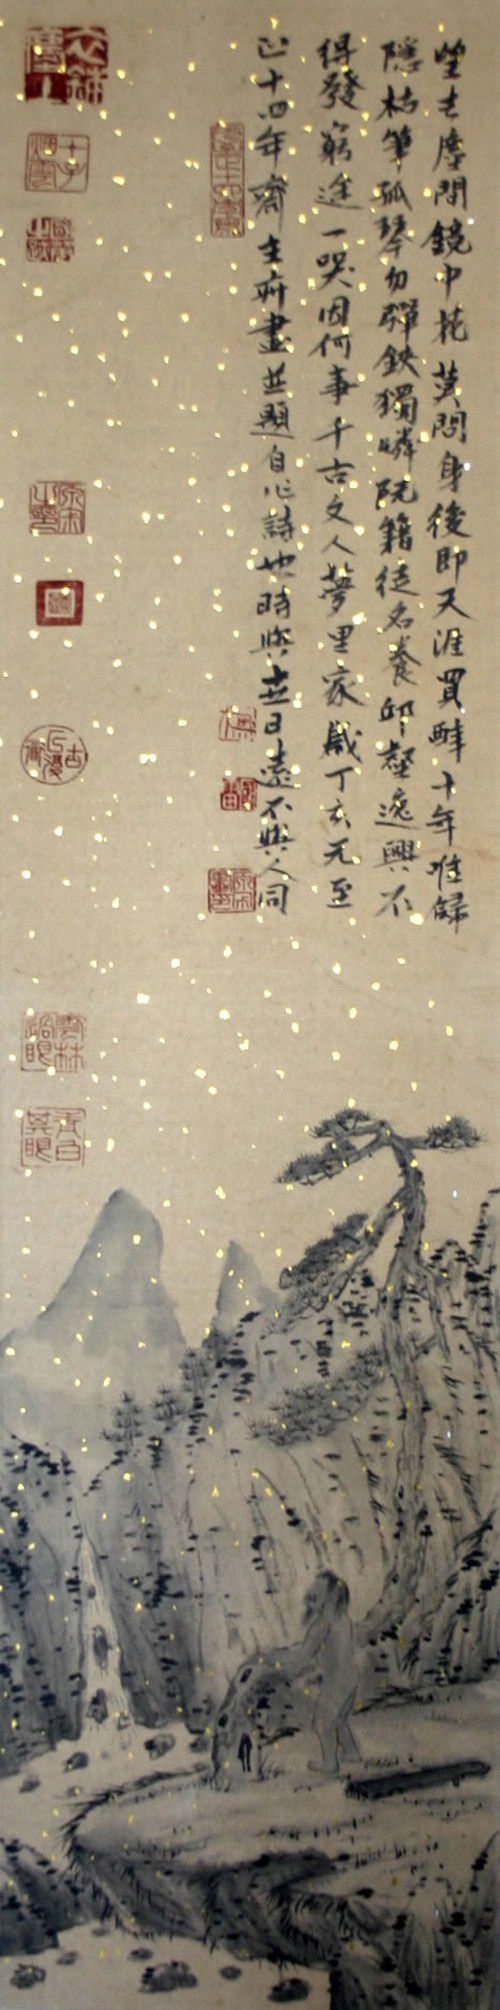 望去塵間鏡中花莫問身後即天涯買醉十年唯歸
隱枯筆孤琴勿彈鋏獨憐阮籍徒名養邱壑逸興不
得發窮途一哭因何事千古文人夢里家歲丁亥元至
正十四年齋主府畫並題自心詩也時與日遠不與人同
雲林過眼